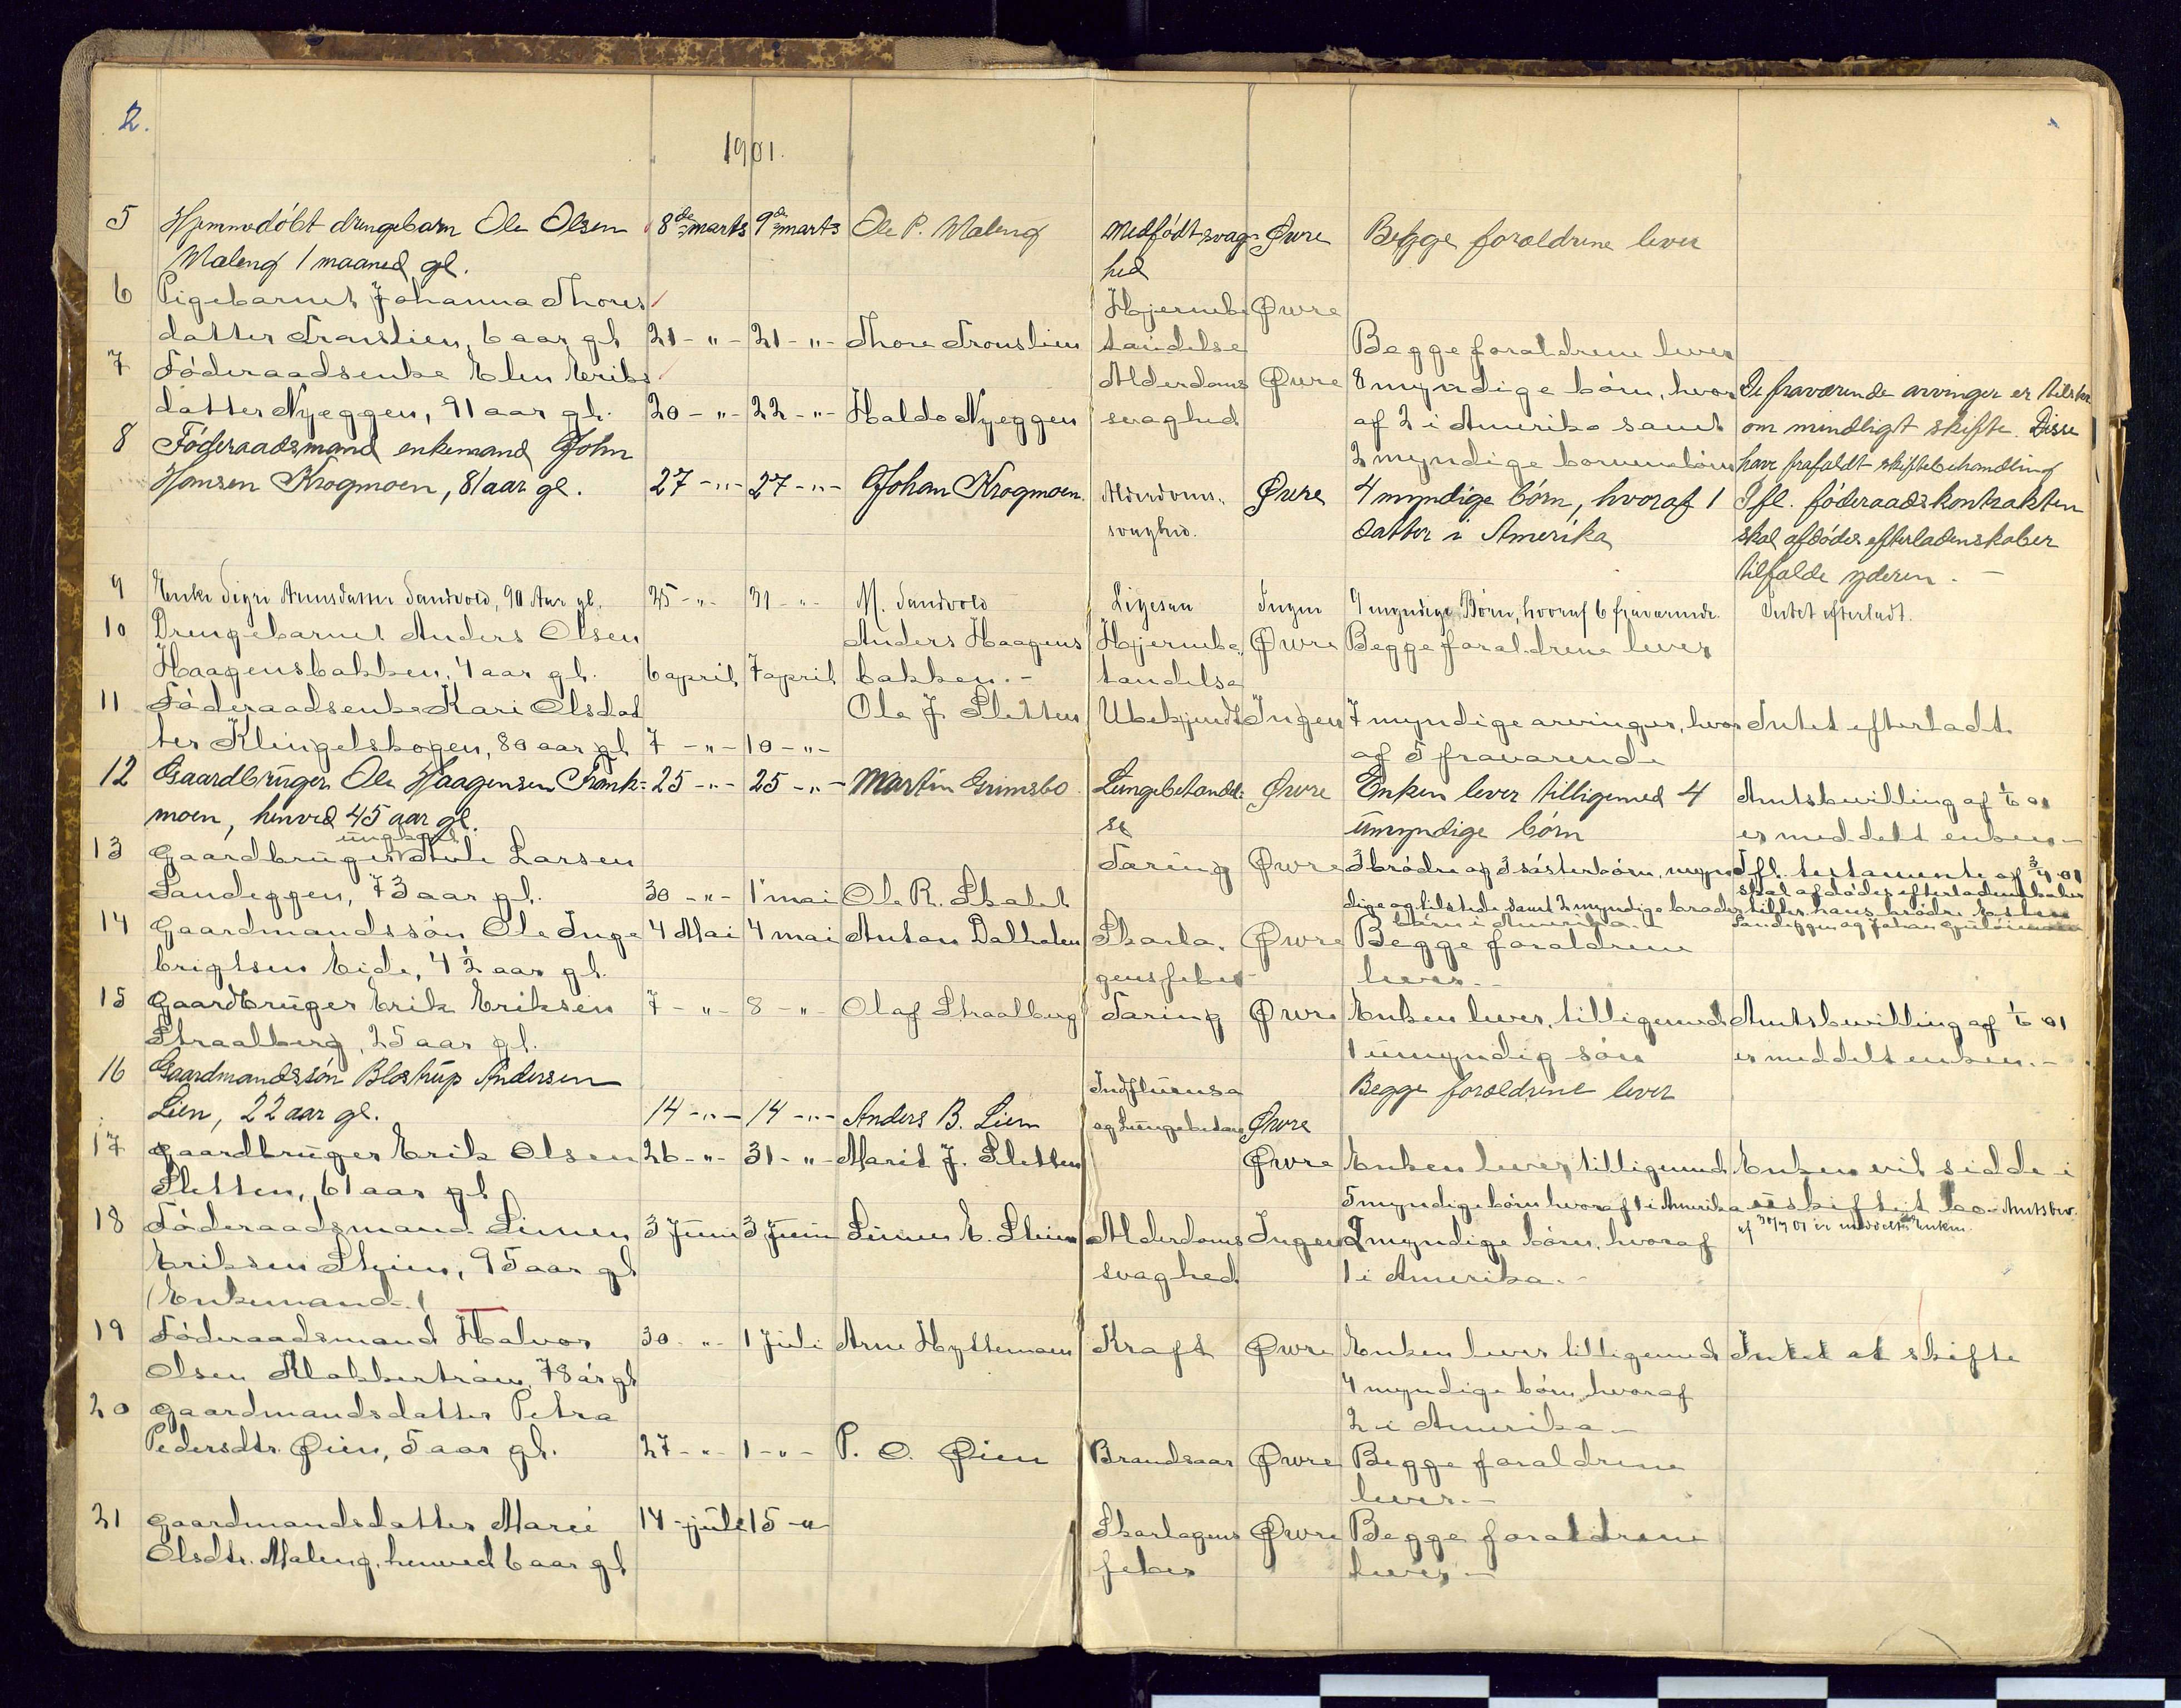 2.
1901.
5 Hjemmedöbt drengebarn Ole Olsen 8de marts 9de marts Ole P. Maleng Medfödt svag- Øvre Begge forældrene lever
Maleng 1 maaned gl. hed
6 Pigebarnet Johanna Thores Hjernebe Øvre
datter Tronslien, 6 aar gl 21 -"- 21 -"- Thore Tronslien tændelse Begge forældrene lever
7 Föderaadsenke Elen Eriks Alderdoms Øvre 8 myndige börn, hvor De fraværende arvinger er tilskr.
datter Nyeggen, 91 aar gl. 20 -"- 22 -"- Haldo Nyeggen svaghed af 2 i Amerika samt om mindligt skifte. Disse
8 Föderaadsmand enkemand John 2 myndige barnebörn have frafaldt skiftebehandling
Hansen Krogmoen, 81 aar gl. 27 -"- 27 -"- Johan Krogmoen. Alderdoms- Øvre 4 myndige börn, hvoraf 1 Ifl. föderaadskontrakten
svaghed. datter i Amerika skal afdödes efterladenskaber
tilfalde yderen. -
9 Enke Sigri Arnesdatter Sandvold, 90 Aar gl. 25 -"- 31 -"- M. Sandvold Ligesaa Ingen 9 myndige Börn, hvoraf 6 fraværende. Intet efterladt.
10 Drengebarnet Anders Olsen Anders Haagens Hjernebe Øvre Begge forældrene lever
Haagensbakken, 4 aar gl. 6 april 7 april bakken. - tændelse
11 Föderaadsenke Kari Olsdat Ole J. Sletten Ubekjendt Ingen 7 myndige arvinger, hvor Intet efterladt
ter Klingelskogen, 80 aar gl 7 -"- 10 -"- af 5 fraværende
12 Gaardbruger Ole Haagensen Tronk= 25 -"- 25 -"- Martin Grimsbo Lungebetændel- Øvre Enken lever tilligemed 4 Amtsbevilling af 1/6 01
moen, henved 45 aar gl. se umyndige börn er meddelt enken -
13 Gaardbruger ungkarl Larsen Tæring Øvre 3 brödre og 3 sösterbörn, myn Ifl. testamente af 3/4 01
Sandeggen, 73 aar gl. 30 -"- 1 mai Ole R. Skalet dige og tilstede samt 2 myndige broder skal afdödes efterladenskaber
börn i Amerika tilfles hans brödre Esten
14 Gaardmandssön Ole Inge 4 Mai 4 mai Anton Dalholen Skarla- Øvre Begge forældrene Sandeggen og Johan
brigtsen Eide, 4 1/2 aar gl. gensfeber lever. -
15 Gaardbruger Erik Eriksen 7 -"- 8 -"- Olaf Straalberg Tæring Øvre Enken lever, tilligemed Amtsbevilling af 1/6 01
Straalberg, 25 aar gl. 1 umyndig sön er meddelt enken. -
16 Gaardmandssön Blostrup Andersen Indfluensa Begge forældrene lever
Lien, 22 aar gl. 14 -"- 14 -"- Anders B. Lien og Lungebetæn Øvre
17 Gaardbruger Erik Olsen 26 -"- 31 -"- Marit J. Sletten Øvre Enken lever tilligemed Enken vil sidde i
Sletten, 61 aar gl 5 myndige börn hvoraf 1 i Amerika uskiftet bo - Amtsbev.
18 Föderaadsmand Simen 3 Juni 3 Juni Simen E. Steien Alderdoms Ingen 2 myndige börn, hvoraf af 30/7 01 er meddelt Enken.
Eriksen Steien, 95 aar gl svaghed 1 i Amerika. -
(Enkemand.)
19 Föderaadsmand Halvor 30 -"- 1 Juli Arne Hyttemoen Kræft Øvre Enken lever tilligemed Intet at skifte
Olsen Klokkertröen, 78 år gl 4 myndige börn, hvoraf
20 Gaardmandsdatter Petra 2 i Amerika -
Pedersdtr. Øien, 5 aar gl. 27 -"- 1 -"- P. O. Øien Brandsaar Øvre Begge forældrene
lever. -
21 Gaardmandsdatter Marie 14 - juli 15 -"- Skarlagens Øvre Begge forældrene
Olsdtr. Maleng, henved 6 aar gl feber lever -